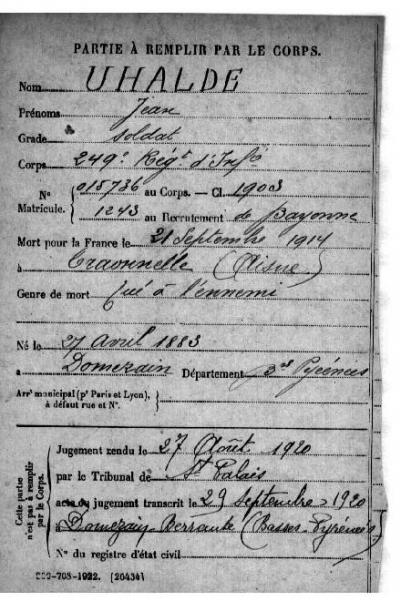 PARTIE À REMPLIR PAR LE CORPS.
Nom UHALDE
Prénoms Jean
Grade soldat
Corps 249e Régt d'Infie
No Matricule. { 015736 au Corps. — Cl. 1903
1243 au Recrutement de Bayonne
Mort pour la France le 21 Septembre 1914
à Craonnelle (Aisne)
Genre de mort tué à l'ennemi
Né le 27 Avril 1883
à Domezain Département Bses Pyrénées
Arrt municipal (pr Paris et Lyon), à défaut rue et No.
Cette partie n'est pas à remplir par le Corps.
Jugement rendu le 27 Août 1920
par le Tribunal de St Palais
acte ou jugement transcrit le 29 Septembre 1920
à Domezain-Berraute (Basses-Pyrénées)
No du registre d'état civil
-708-1922. [26434]